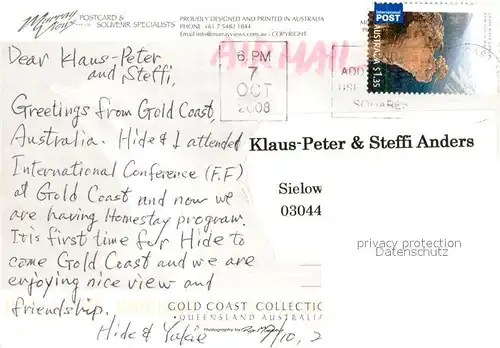 Murray Views
POSTCARD &
SOUVENIR SPECIALISTS
PROUDLY DESIGNED AND PRINTED IN AUSTRALIA
PHONE +61 7 5482 1844
Email info@murrayviews.com - COPYRIGHT
AIRMAIL
INTERNATIONAL
POST
AUSTRALIA $1.35
6 PM
7
OCT
2008
ADD
USE
SQUARES
Dear Klaus-Peter
and Steffi,
Greetings from Gold Coast,
Australia. Hide & I attended
International Conference (F.F)
at Gold Coast and now we
are having Homestay program.
It is first time for Hide to
come Gold Coast and we are
enjoying nice view and
friendship.
Hide & Yukie
7/10, 2
Klaus-Peter & Steffi Anders
Sielow
03044
privacy protection
Datenschutz
GOLD COAST COLLECTIO
QUEENSLAND AUSTRALIA
Photography by